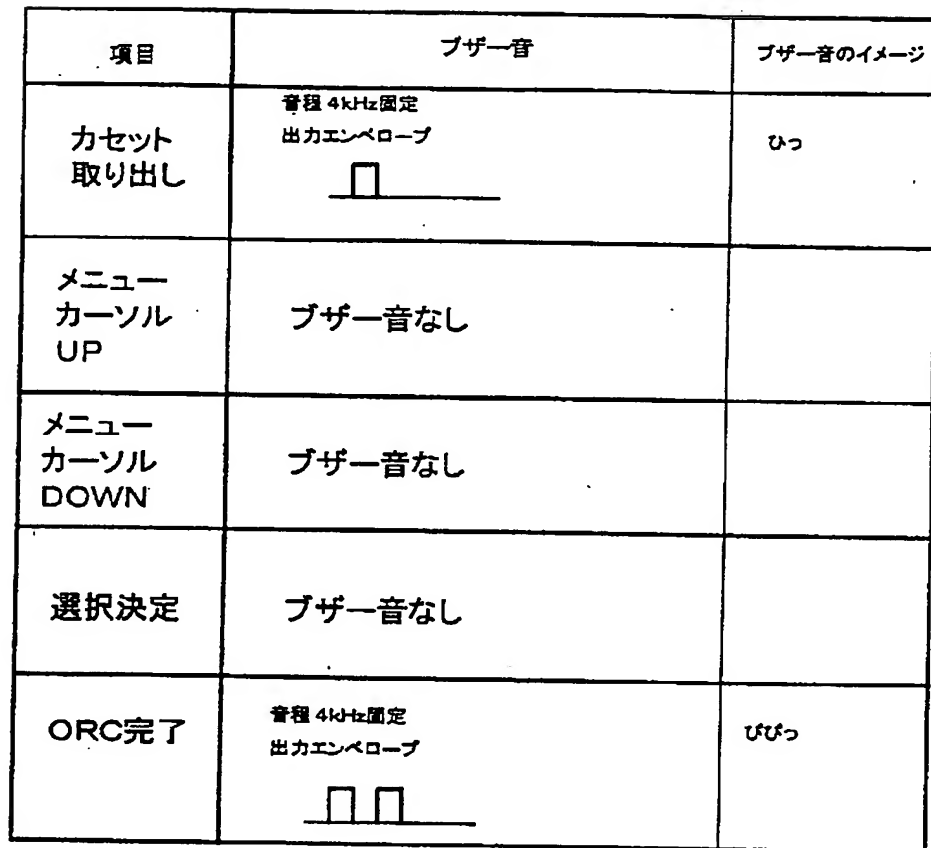 項目
ブザー音
ブザー音のイメージ
カセット
取り出し
音程 4kHz固定
出力エンベロープ
ひっ
メニュー
カーソル
UP
ブザー音なし
メニュー
カーソル
DOWN
ブザー音なし
選択決定
ブザー音なし
ORC完了
音程 4kHz固定
出力エンベロープ
びびっ